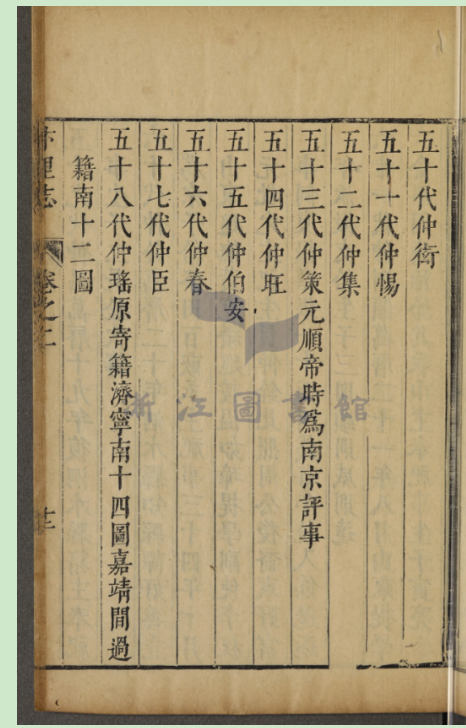 五十代仲銜
五十一代仲惕
五十二代仲集
五十三代仲策元順帝時爲南京評事
五十四代仲旺
五十五代仲伯安
五十六代仲春
五十七代仲臣
五十八代仲瑤原寄籍濟寧南十四圖嘉靖間過
籍南十二圖
里志 卷之二
浙江圖書館